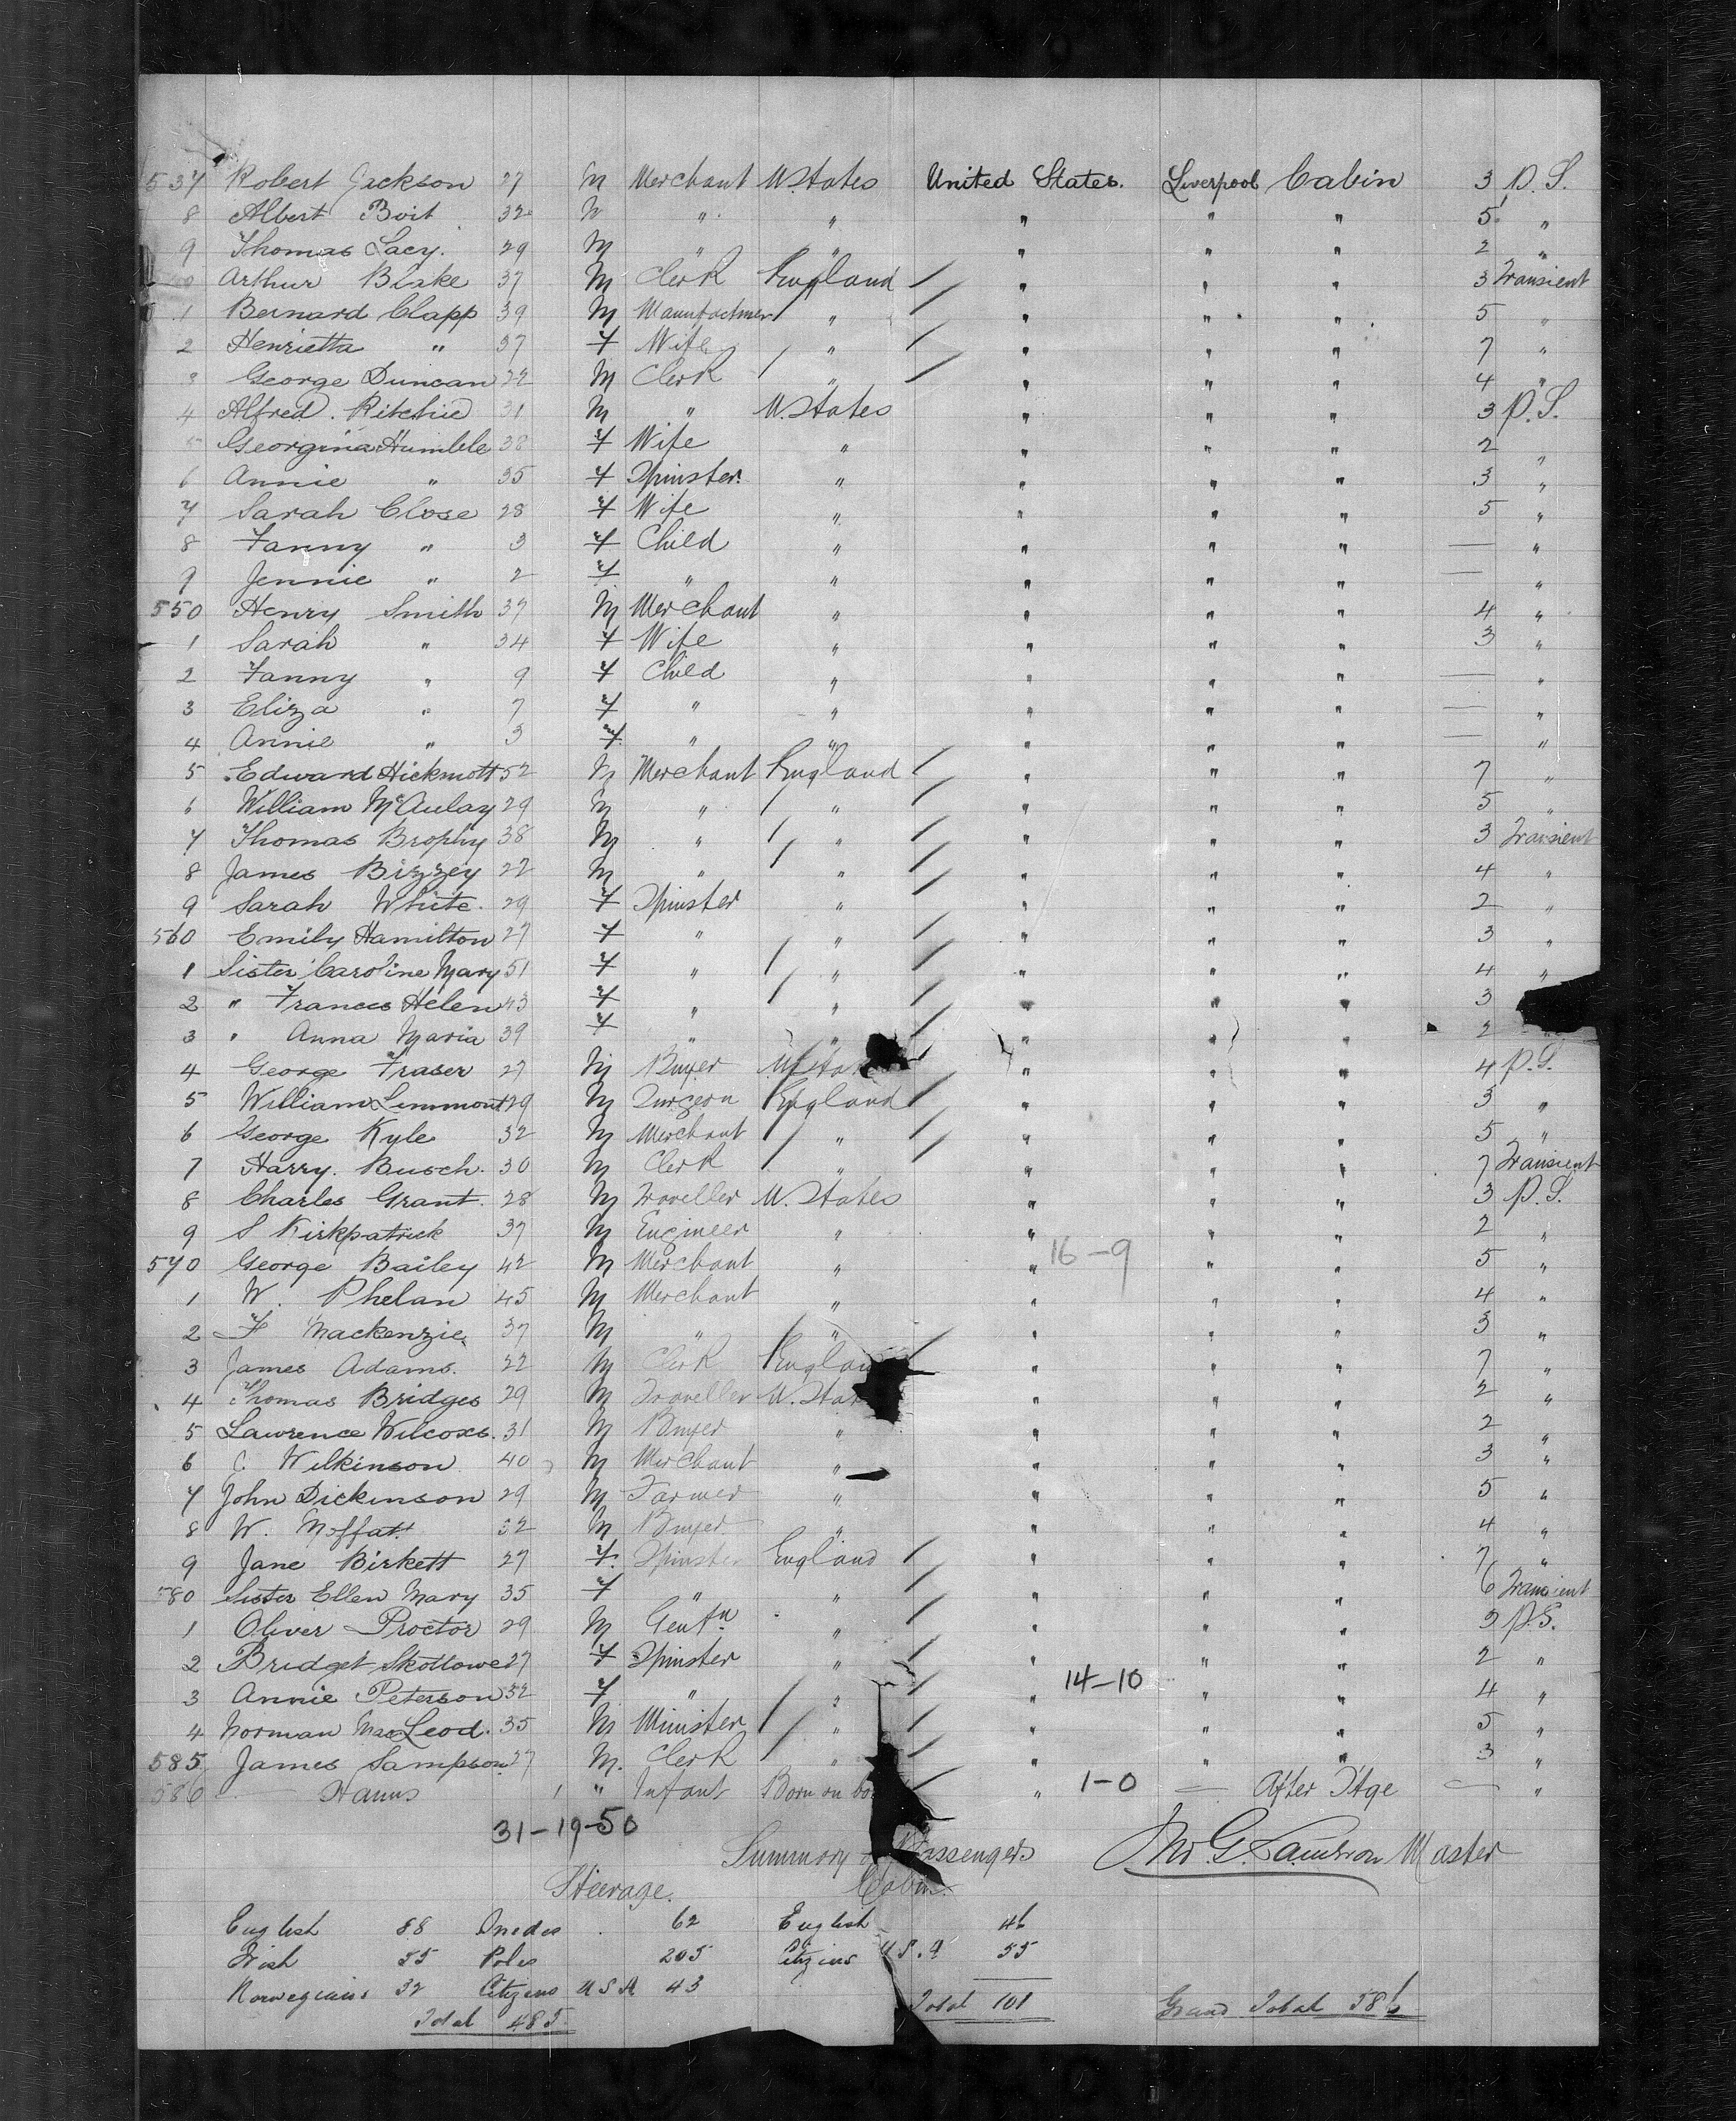 537 Robert Jackson 27 M Merchant U.States United States. Liverpool Cabin 3 P.S.
8 Albert Boit 32 M " " " " " 5 "
9 Thomas Lacy. 29 M " " " " " 2 "
Arthur Blake 37 M Clerk England " " " 3 Transient
1 Bernard Clapp 39 M Manufacturer " " " " 5 "
2 Henrietta " 37 F Wife " " " " 7 "
3 George Duncan 22 M Clerk " " " " 4 "
4 Alfred. Ritchie 31 M " U.States " " " 3 P.S.
5 Georgina Humble 38 F Wife " " " " 2 "
6 Annie " 35 F Spinster. " " " " 3 "
7 Sarah Close 28 F Wife " " " " 5 "
8 Fanny " 3 F Child " " " " — "
9 Jennie " 2 F " " " " " — "
550 Henry Smith 37 M Merchant " " " " 4 "
1 Sarah " 34 F Wife " " " " 3 "
2 Fanny " 9 F Child " " " " — "
3 Eliza " 7 F " " " " " — "
4 Annie " 3 F " " " " " — "
5 Edward Hickmott 52 M Merchant England " " " 7 "
6 William McAulay 29 M " " " " " 5 "
7 Thomas Brophy 38 M " " " " " 3 Transient
8 James Bizzey 22 M " " " " " 4 "
9 Sarah White. 29 F Spinster " " " " 2 "
560 Emily Hamilton 27 F " " " " " 3 "
1 Sister Caroline Mary 51 F " " " " " 4 "
2 " Frances Helen 43 F " " " " " 3
3 " Anna Maria 39 F " " " " " 2
4 George Fraser 27 M Buyer U.States " " " 4 P.S.
5 William Simmont 29 M Surgeon England " " " 3 "
6 George Kyle 32 M Merchant " " " " 5 "
7 Harry. Busch. 30 M Clerk " " " " 7 Transient
8 Charles Grant. 28 M Traveller U.States " " " 3 P.S.
9 S Kirkpatrick 37 M Engineer " " " " 2 "
16-9
570 George Bailey 42 M Merchant " " " " 5 "
1 W. Phelan 45 M Merchant " " " " 4 "
2 F Mackenzie 37 M " " " " " 3 "
3 James Adams. 22 M Clerk England " " " 7 "
4 Thomas Bridges 29 M Traveller U.Sta " " " 2 "
5 Lawrence Wilcoxs. 31 M Buyer " " " " 2 "
6 C. Wilkinson 40 M Merchant " " " " 3 "
7 John Dickinson 29 M Farmer " " " " 5 "
8 W. Moffat 32 M Buyer " " " " 4 "
9 Jane Birkett 27 F. Spinster England " " " 7 "
580 Sister Ellen Mary 35 F " " " " " 6 Transient
1 Oliver Proctor 29 M Gentn " " " " 3 P.S.
2 Bridget Skottowe 27 F Spinster " " " " 2 "
14-10
3 Annie Peterson 32 F " " " " " 4 "
4 Norman MacLeod. 35 M Minister " " " " 5 "
585 James Sampson 27 M. Clerk " " " " 3 "
586 — Hanns 1 " Infant Born on bo " 1-0 — After Stge — "
31-19-50
Summary Passengers Jno G. Cameron Master
Steerage. Cabin.
English 88 Swedes 62 English 46
Irish 55 Poles 205 Citizens U.S.A 55
Norwegians 32 Citizens U S A 43
Total 485 Total 101 Grand Total 586